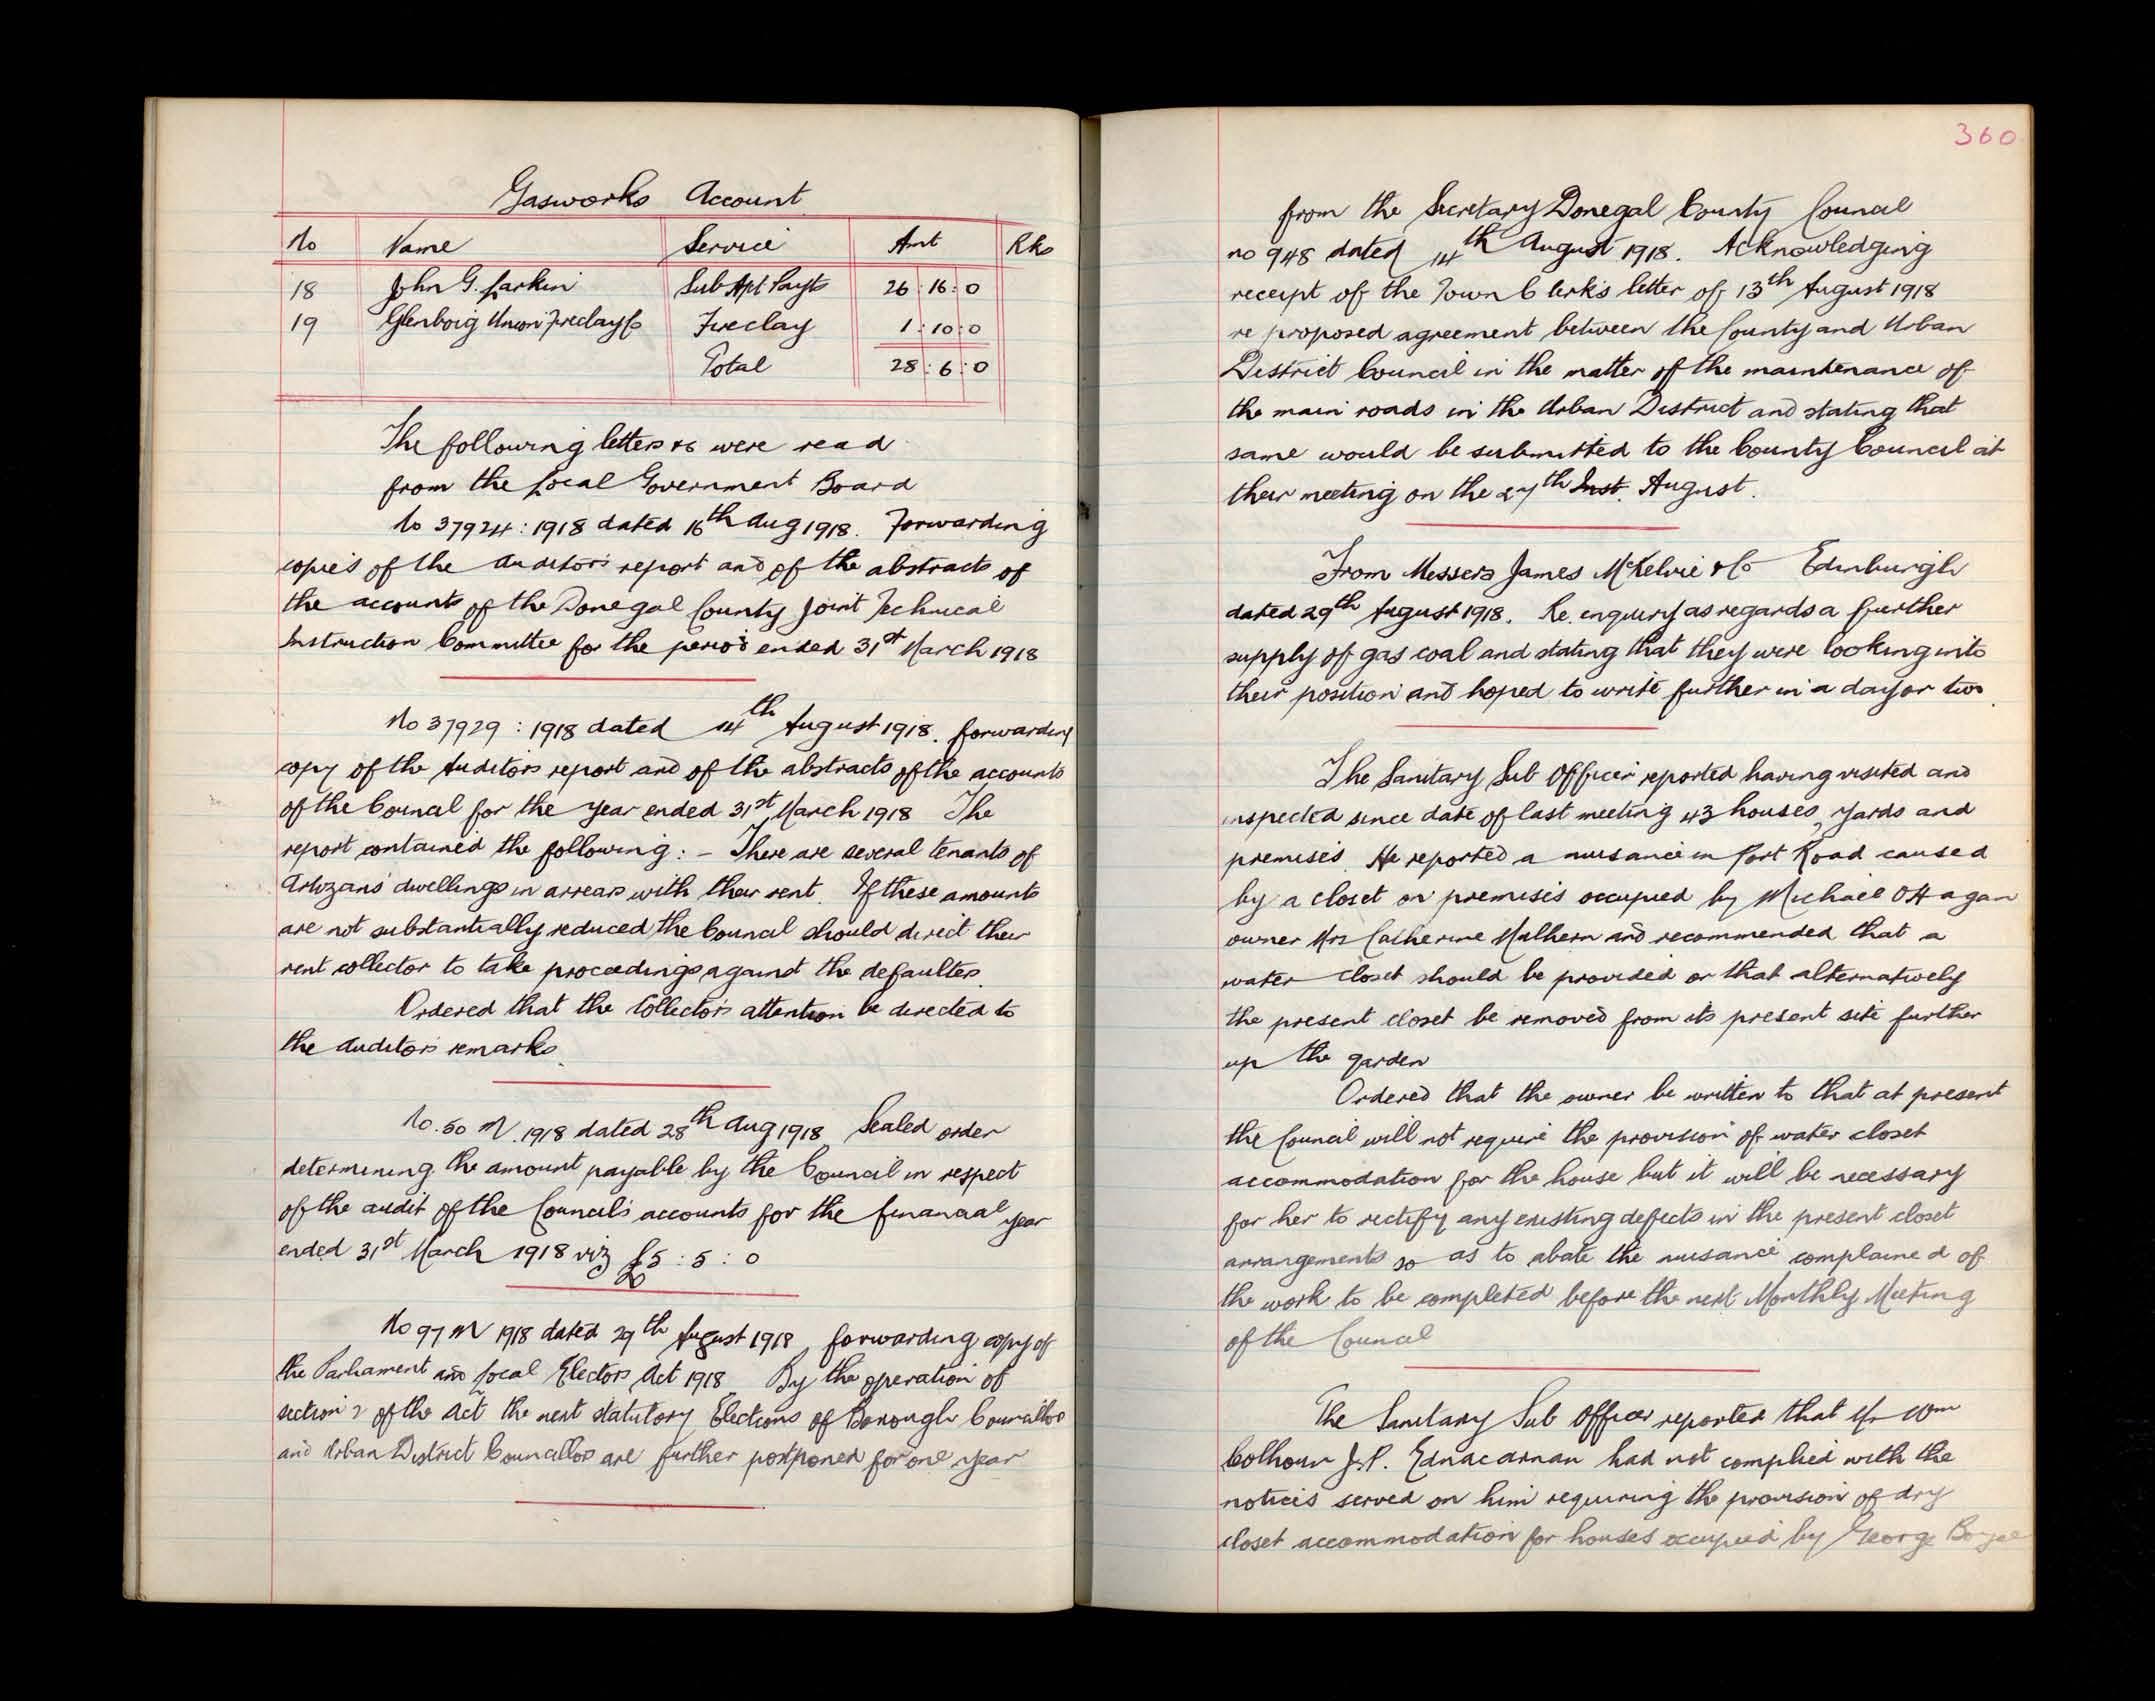 Gasworks Account
No Name Service Amt Rks
18 John G. Larkin Sub Apl Payts 26 : 16 : 0
19 Glenboig Union Fireclay Co Fireclay 1 : 10 : 0
Total 28 : 6 : 0
The following letters &c were read
from the Local Government Board
No 37924 : 1918 dated 16th Aug 1918. Forwarding
copies of the Auditors report and of the abstracts of
the accounts of the Donegal County Joint Technical
Instruction Committee for the period ended 31st March 1918
No 37929 : 1918 dated 14th August 1918. forwarding
copy of the Auditors report and of the abstracts of the accounts
of the Council for the year ended 31st March 1918 The
report contained the following : – There are several tenants of
Artizans dwellings in arrears with their rent. If these amounts
are not substantially reduced the Council should direct their
rent collector to take proceedings against the defaulters.
Ordered that the Collectors attention be directed to
the Auditors remarks.
No. 50 M. 1918 dated 28th Aug 1918 Sealed order
determining the amount payable by the Council in respect
of the audit of the Council's accounts for the financial year
ended 31st March 1918 viz £5 : 5 : 0
No 97 M 1918 dated 29th August 1918 forwarding copy of
the Parliament and Local Electors Act 1918 By the operation of
section 2 of the Act the next statutory Elections of Borough Councillors
and Urban District Councillors are further postponed for one year
360
from the Secretary Donegal County Council
no 948 dated 14th August 1918. Acknowledging
receipt of the Town Clerk's letter of 13th August 1918
re proposed agreement between the County and Urban
District Council in the matter of the maintenance of
the main roads in the Urban District and stating that
same would be submitted to the County Council at
their meeting on the 27th Inst. August.
From Messers James McKelvie & Co Edinburgh
dated 29th August 1918. Re. enquiry as regards a further
supply of gas coal and stating that they were looking into
their position and hoped to write further in a day or two.
The Sanitary Sub Officer reported having visited and
inspected since date of last meeting 43 houses, yards and
premises. He reported a nuisance in Port Road caused
by a closet on premises occupied by Michael OHagan
owner Mrs Catherine Mulhern and recommended that a
water closet should be provided or that alternatively
the present closet be removed from its present site further
up the garden
Ordered that the owner be written to that at present
the Council will not require the provision of water closet
accommodation for the house but it will be necessary
for her to rectify any existing defects in the present closet
arrangements so as to abate the nuisance complained of
the work to be completed before the next Monthly Meeting
of the Council
The Sanitary Sub Officer reported that Mr Wm
Colhoun J.P. Ednacarnan had not complied with the
notices served on him requiring the provision of dry
closet accommodation for houses occupied by George Boyce